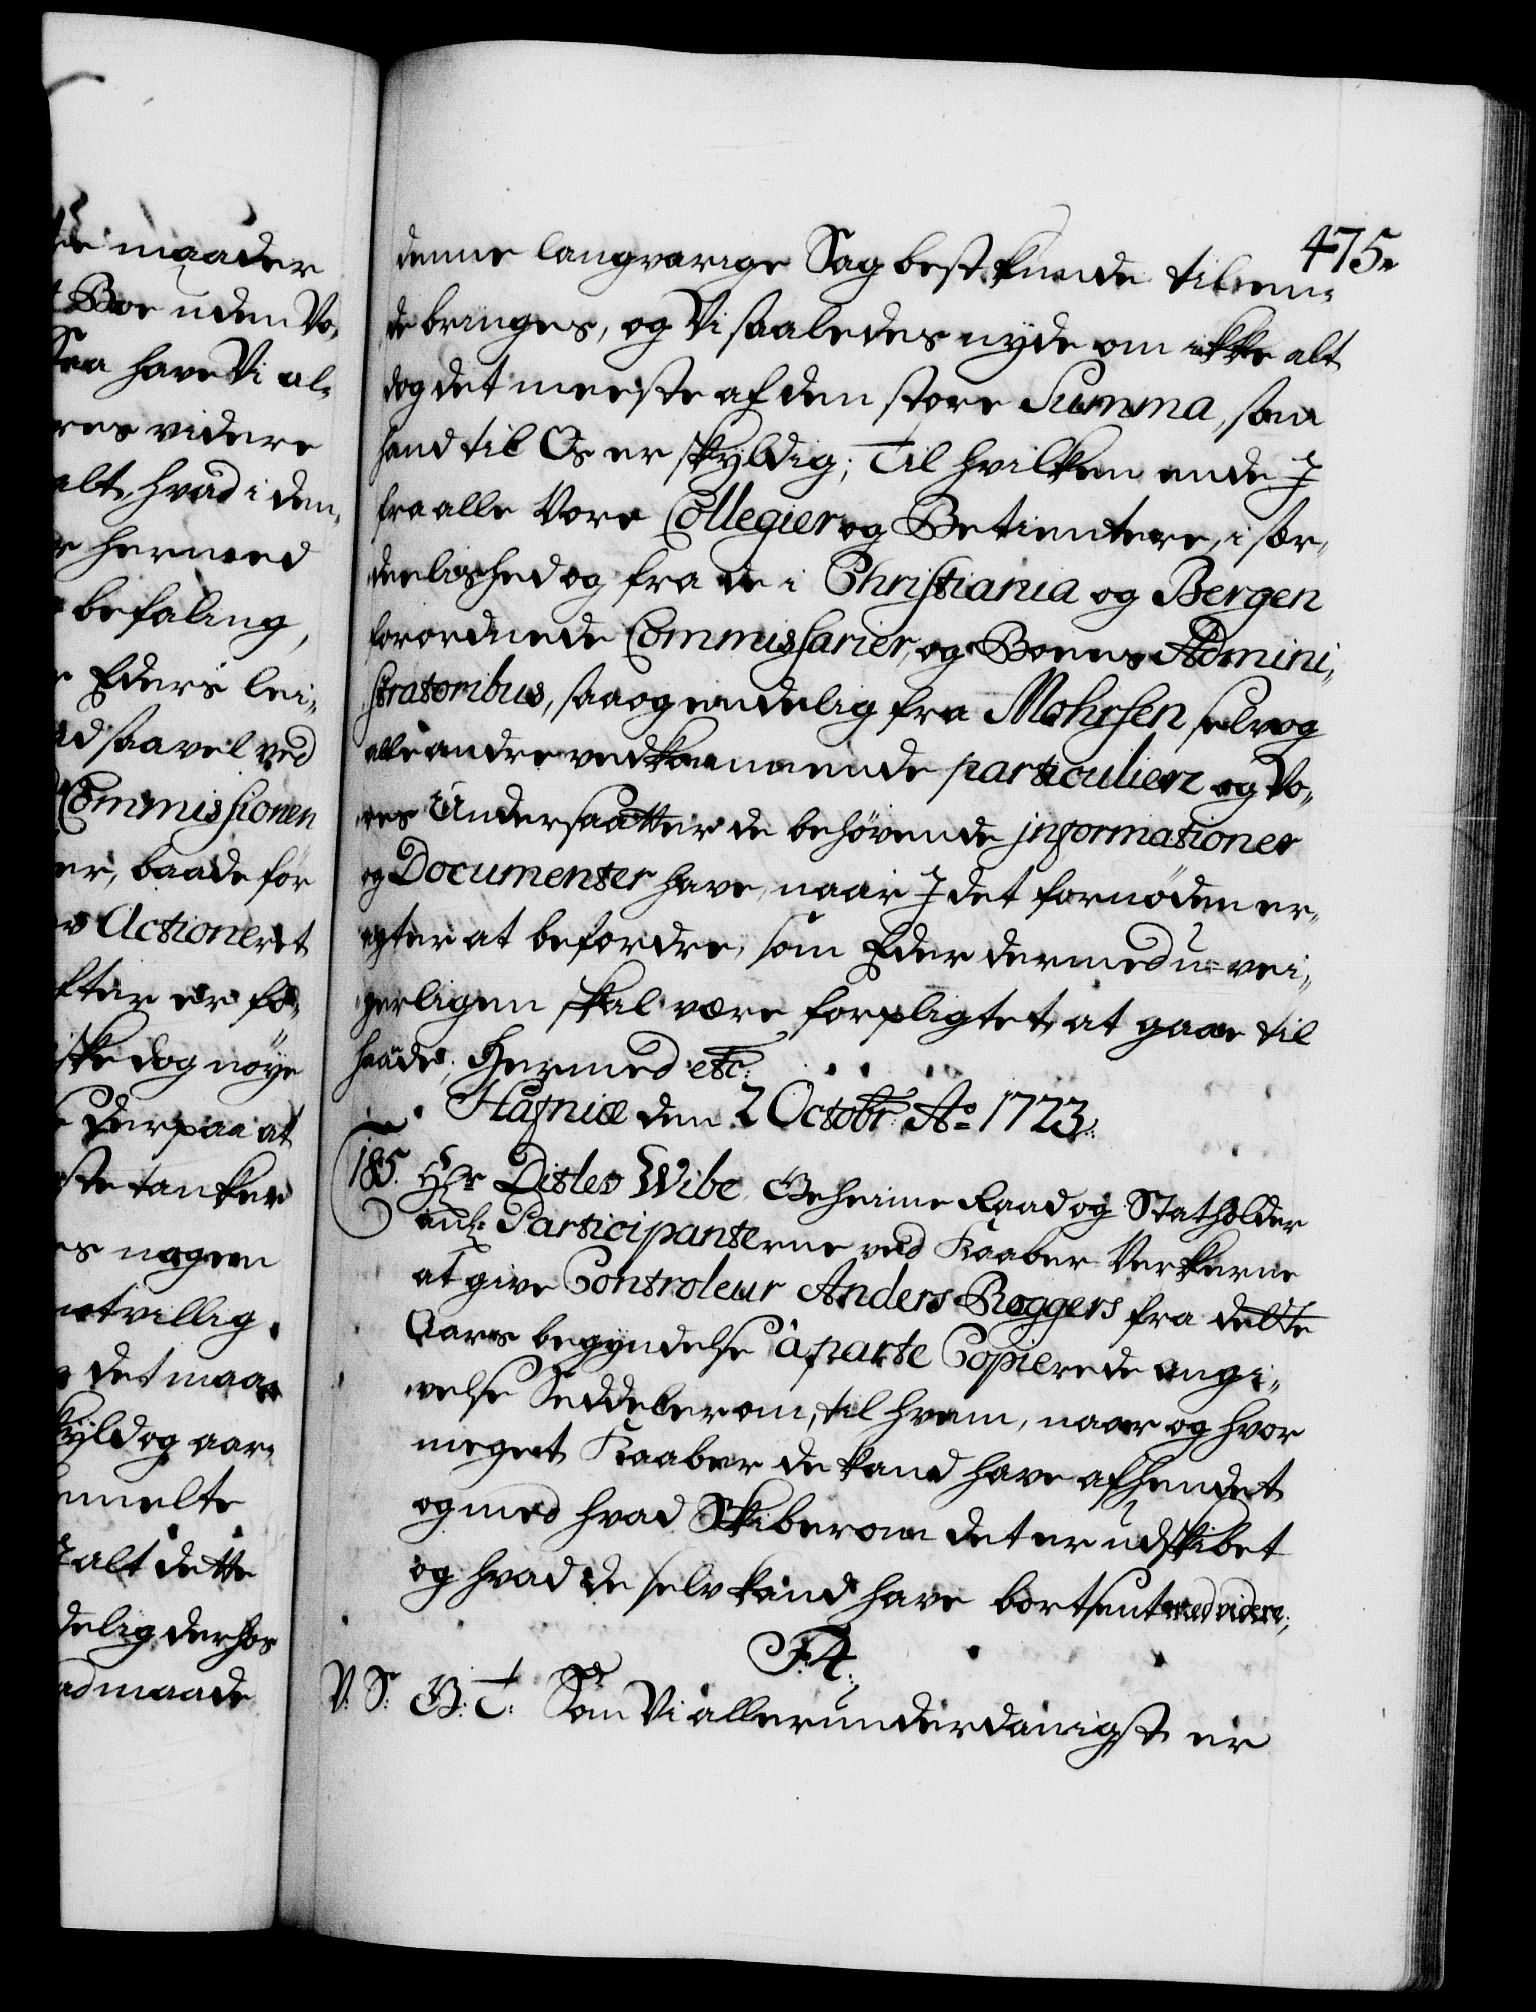 te maader
t Boe uden Vo,
Saa have Vi al,
res videre
alt, hvad i den,
r hermed
befaling,
r Eders lei,
ad saavel ved
Commissionen
er, baade for
Actioneret
fter er fo,
iske dog nøye
e derpaa at
ste tanker
es nogen
otvillig
det maa
skyld og aar,
melte
J alt dette
delig derhos
ad maade
475.
denne langvarige Sag best kunde til en,
de bringes, og Vi saaledes nyde om ikke alt
dog det meeste af den store Summa, som
hand til Os er skyldig; Til hvilken ende J
fra alle Vore Collegier og Betientere, i sær,
deelished og fra de i Christiania og Bergen
forordnede Commissarier, og Boens Admini,
stratoribus, saa og endelig fra Mohrsen selv og
alle andre vedkommende particulier og Vo,
res Undersaatter de behövende informationer
og Documenter have, naar J det fornöden er,
agter at befordre, som Eder dermed u-vei,
gerligen skal være forpligtet, at gaae til
haande; Hermed etc:
Hafniæ den 2 Octobr: Ao 1723.
185. Hr Ditlev Wibe Geheime Raad og Statholder
anl: Participanterne ved Kaaber Verkerne
at give Controleur Anders Roggers fra dette
Aars begyndelse âparte Copierede angi,
velse Seddeler om, til hvem, naar og hvor
meget Kaaber de kand have afhendet
og med hvad Skiberom det er udskibet
og hvad de selv kand have bortsent med videre,
F. 4.
V: S: G: T: Som Vi allerunderdanigst er